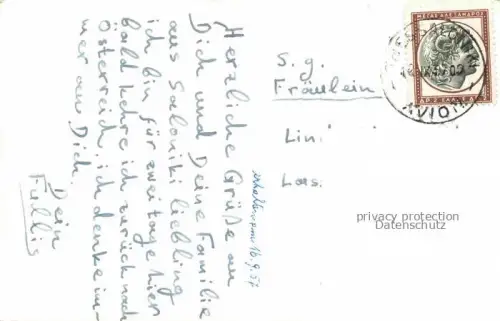 Herzliche Grüße an
Dich und Deine Familie
aus Saloniki liebling
ich bin für zwei tage hier
bald kehre ich zurück nach
Österreich, ich denke im-
mer an Dich.
Dein
erhalten am 16.9.57
S. g.
Fräulein
Lini
Las
ΜΕΓΑΣ ΑΛΕΞΑΝΔΡΟΣ
AVION
privacy protection
Datenschutz